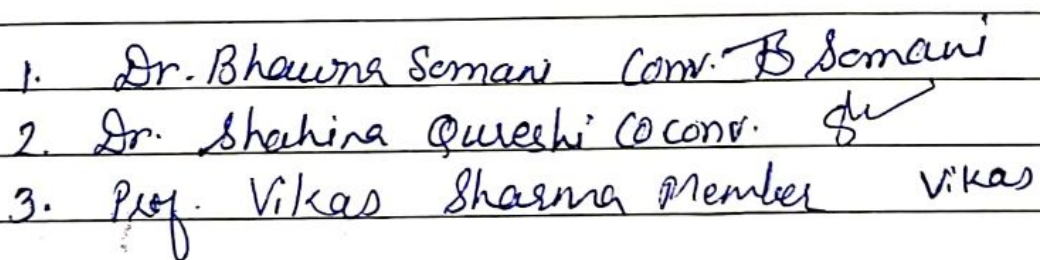 1. Dr. Bhawna Somani Conv. B Somani
2. Dr. Shahina Qureshi Coconv.
3. Prof. Vikas Sharma Member Vikas